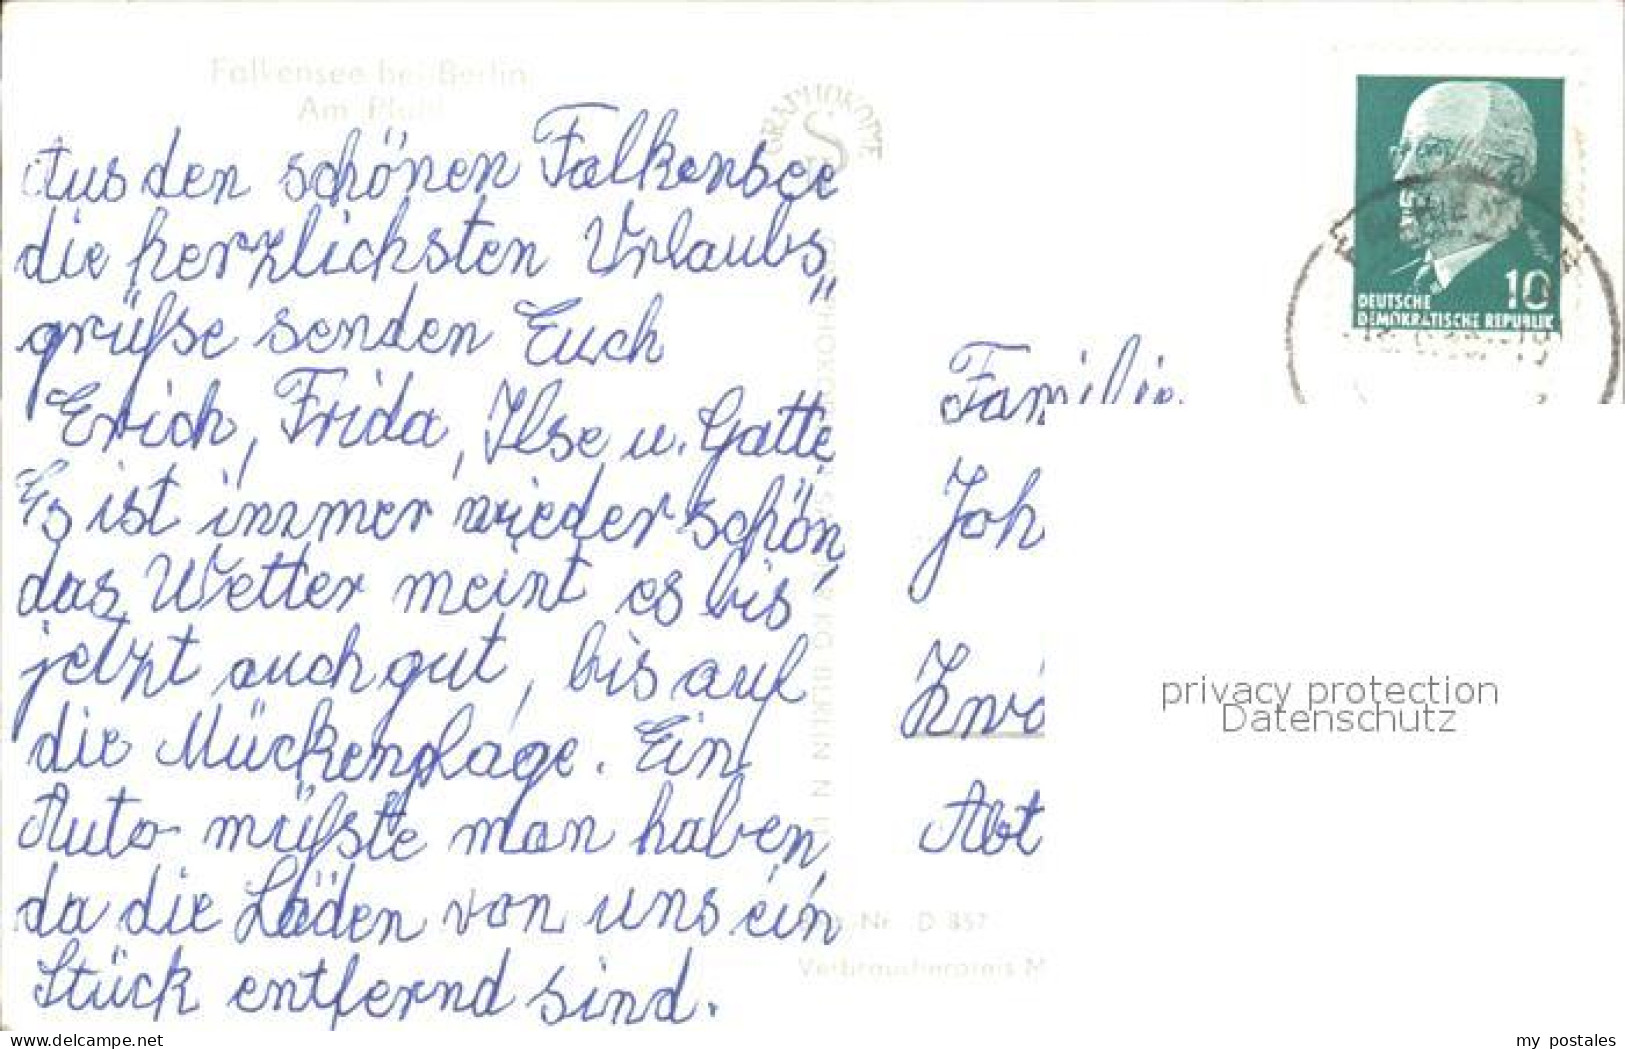 Falkensee bei Berlin
Am Pfuhl
GRAPHOKOPIE
Aus den schönen Falkensee
die herzlichsten Urlaubs„
grüße senden Euch
Erich, Frida, Ilse u. Gatte
Es ist immer wieder schön
das Wetter meint es bis
jetzt auch gut, bis auf
die Mückenplage. Ein
Auto müßte man haben
da die Läden von uns ein
Stück entfernd sind.
10
DEUTSCHE
DEMOKRATISCHE REPUBLIK
Familie
Joh
Zwö
Abt
privacy protection
Datenschutz
Nr. D 857
Verbraucherpreis M
www.delcampe.net
my_postales